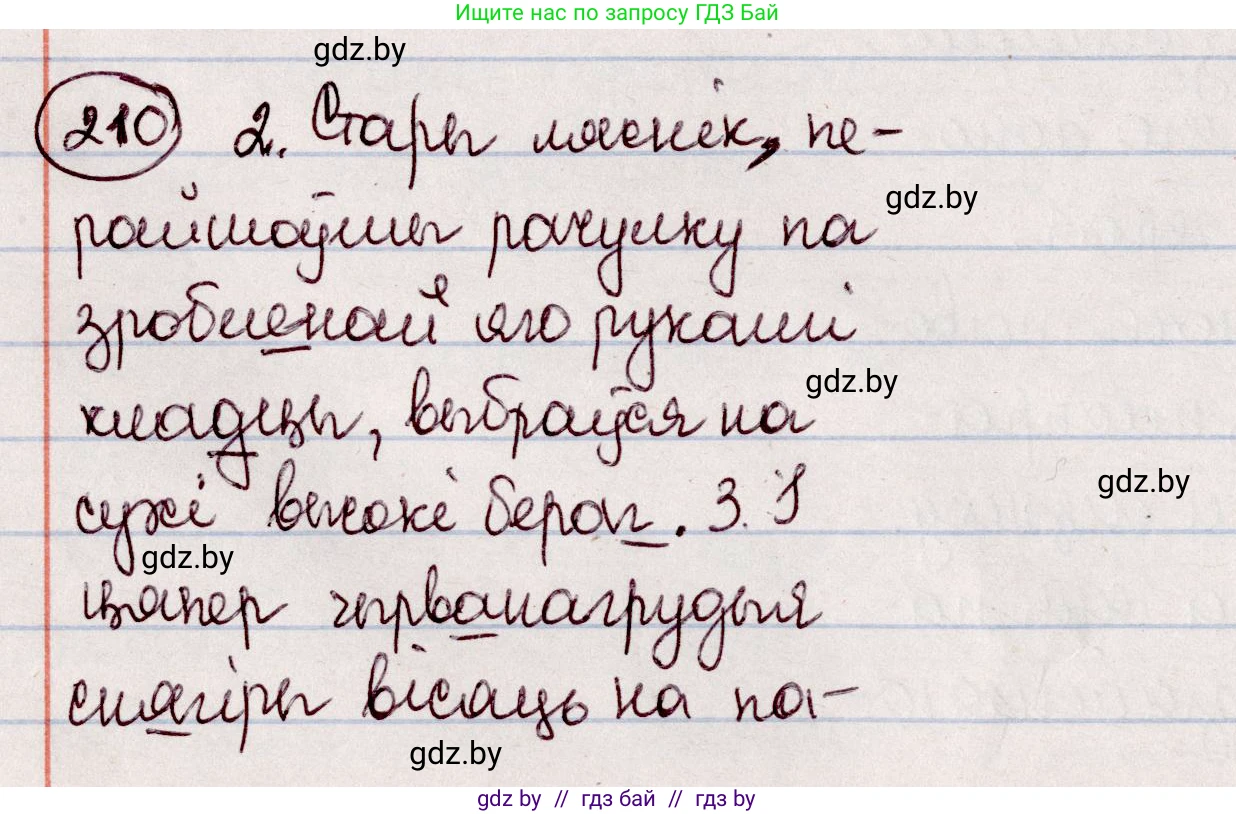 Ищите нас по запросу ГДЗ Бай
gdz.by
210 2. Стары ляснік, пе-
gdz.by
райшоўшы рачулку па
зробленай яго рукамі
gdz.by
кладцы, выбраўся на
gdz.by
сухі высокі бераг. 3. І
gdz.by
цяпер чырванагрудыя
снягіры вісаць на па-
gdz.by
gdz by // гдз бай // гдз by